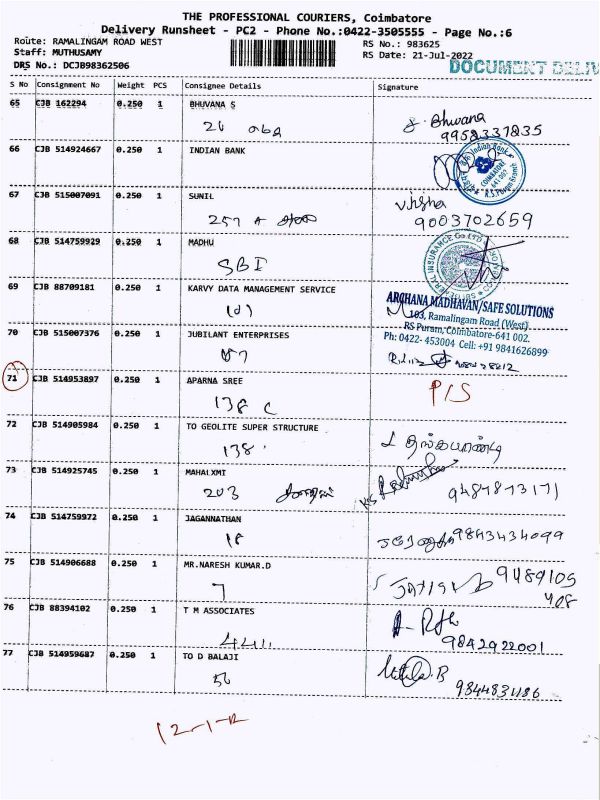 THE PROFESSIONAL COURIERS, Coimbatore
Delivery Runsheet - PC2 - Phone No.:0422-3505555 - Page No.:6
Route: RAMALINGAM ROAD WEST RS No.: 983625
Staff: MUTHUSAMY RS Date: 21-Jul-2022
DRS No.: DCJB98362506 DOCUMENT DELIV
S No Consignment No Weight PCS Consignee Details Signature
65 CJB 162294 0.250 1 BHUVANA S
Bhuvana
9958337835
66 CJB 514924667 0.250 1 INDIAN BANK
Indian Bank
COIMBATORE
641 002
R.S. Puram Branch
67 CJB 515007091 0.250 1 SUNIL
257 A
9003702659
68 CJB 514759929 0.250 1 MADHU
SBI
69 CJB 88709181 0.250 1 KARVY DATA MANAGEMENT SERVICE
ARCHANA MADHAVAN/SAFE SOLUTIONS
103, Ramalingam Road (West)
RS Puram, Coimbatore-641 002.
Ph: 0422- 453004 Cell: +91 9841626899
70 CJB 515007376 0.250 1 JUBILANT ENTERPRISES
71 CJB 514953897 0.250 1 APARNA SREE
138 C P/S
72 CJB 514905984 0.250 1 TO GEOLITE SUPER STRUCTURE
138
73 CJB 514925745 0.250 1 MAHALXMI
203
9487873171
74 CJB 514759972 0.250 1 JAGANNATHAN
18 9843434099
75 CJB 514906688 0.250 1 MR.NARESH KUMAR.D
7 9489105
408
76 CJB 88394102 0.250 1 T M ASSOCIATES
9842922001
77 CJB 514959687 0.250 1 TO D BALAJI
56
12-1-12